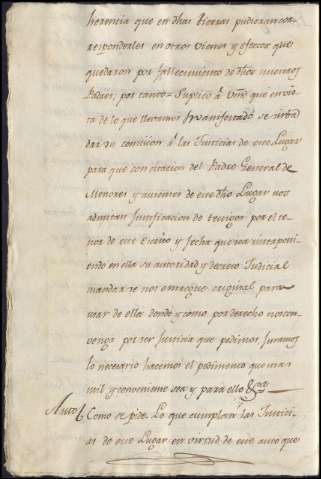 herencia que en dhas tierras pudieran cor
responderles en otros vienes y efectos que
quedaron por fallecimiento de dhos nuestros
Padres, por tanto = Suplico á Vmd que en vis
ta de lo que llevamos manifestado se sirba
dar su comision á las Justicias de ese Lugar
para que con citacion del Padre General de
Menores y ausentes de ese dho Lugar nos
admitan justificacion de testigos por el te
nor de este Escrito y fecha que sea interponi
endo en ella su autoridad y decreto Judicial
mandar se nos entregue original para
usar de ella donde y como por derecho nos con
venga por ser justicia que pedimos juramos
lo necesario hacemos el pedimento que mas
util y conveniente sea y para ello &
Auto Como se pide. Lo que cumplan las Justici
as de ese Lugar en virtud de este auto que